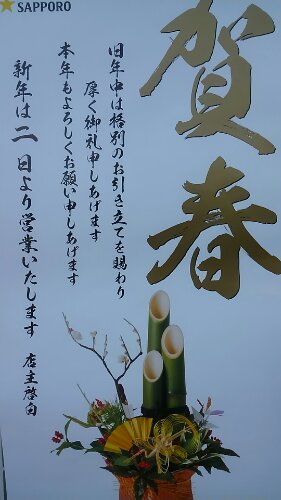 SAPPORO
賀春
旧年中は格別のお引き立てを賜わり
厚く御礼申しあげます
本年もよろしくお願い申しあげます
新年は二日より営業いたします 店主啓白